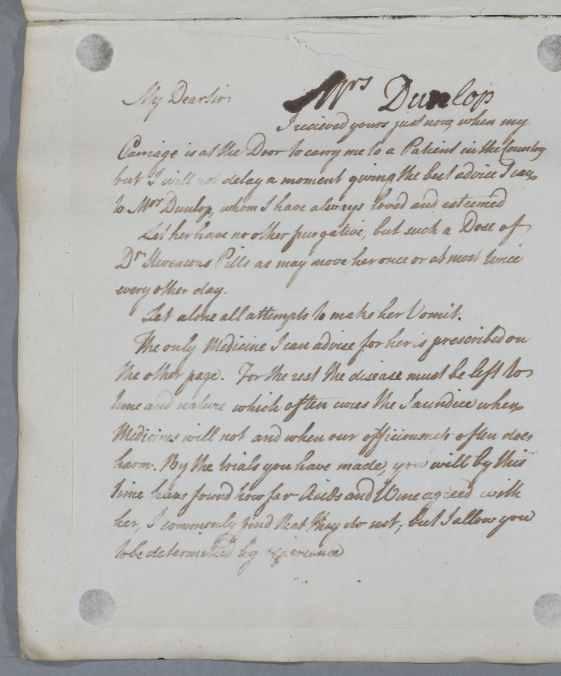 Mrs Dunlop
My Dear Sir
I recieved yours just now, when my
Carriage is at the Door to carry me to a Patient in the Country
but I will not delay a moment giving the best advice I can
to Mrs Dunlop, whom I have always loved and esteemed
Let her have no other purgative, but such a Dose of
Dr Stevensons Pills as may move her once or at most twice
every other day.
Let alone all attempts to make her Vomit.
The only Medicine I can advise for her is prescribed on
the other page. For the rest the disease must be left to
time and nature which often cures the Jaundice when
Medicines will not and when our officiousness often does
harm. By the trials you have made, you will by this
time have found how far Acids and Wine agreed with
her, I commonly find that they do not, but I allow you
to be determined by experience